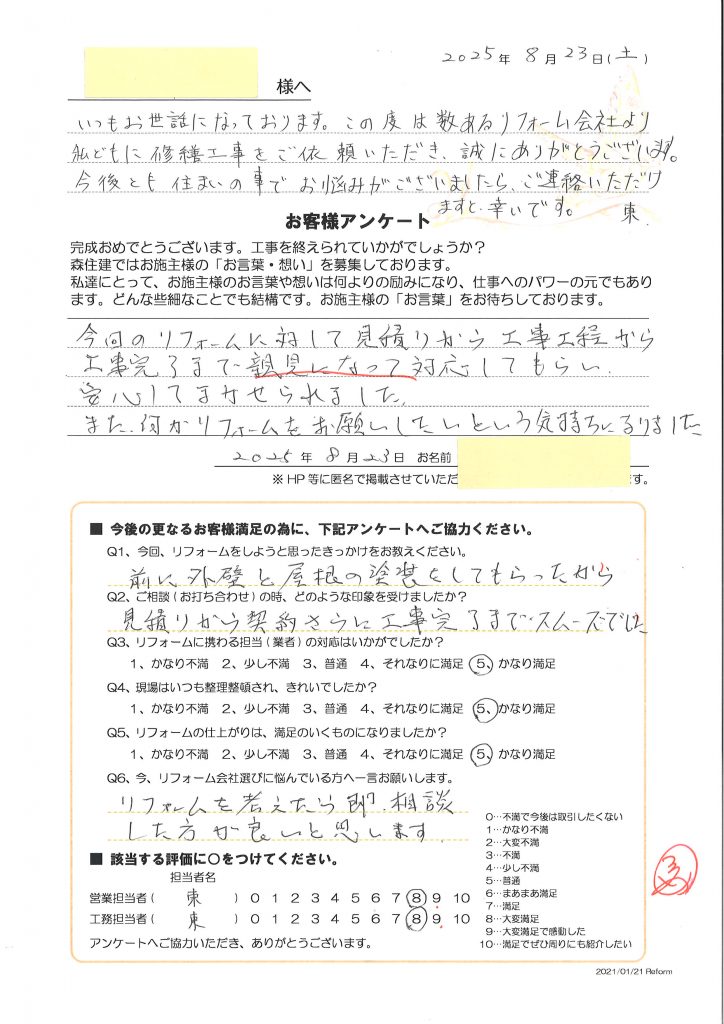 2025年 8月23日(土)
様へ
いつもお世話になっております。この度は数あるリフォーム会社より
私どもに修繕工事をご依頼いただき、誠にありがとうございます。
今後とも住まいの事でお悩みがございましたら、ご連絡いただけ
ますと、幸いです。 東
お客様アンケート
完成おめでとうございます。工事を終えられていかがでしょうか?
森住建ではお施主様の「お言葉・想い」を募集しております。
私達にとって、お施主様のお言葉や想いは何よりの励みになり、仕事へのパワーの元でもあり
ます。どんな些細なことでも結構です。お施主様の「お言葉」をお待ちしております。
今回のリフォームに対して見積りから工事工程から
工事完了まで親見になって対応してもらい、
安心してまかせられました。
また、何かリフォームをお願いしたいという気持ちになりました
2025年 8月23日 お名前
※HP等に匿名で掲載させていただ ます。
■ 今後の更なるお客様満足の為に、下記アンケートへご協力ください。
Q1、今回、リフォームをしようと思ったきっかけをお教えください。
前に外壁と屋根の塗装をしてもらったから
Q2、ご相談(お打ち合わせ)の時、どのような印象を受けましたか?
見積りから契約さらに工事完了までスムーズでした
Q3、リフォームに携わる担当(業者)の対応はいかがでしたか?
1、かなり不満 2、少し不満 3、普通 4、それなりに満足 5、かなり満足
Q4、現場はいつも整理整頓され、きれいでしたか?
1、かなり不満 2、少し不満 3、普通 4、それなりに満足 5、かなり満足
Q5、リフォームの仕上がりは、満足のいくものになりましたか?
1、かなり不満 2、少し不満 3、普通 4、それなりに満足 5、かなり満足
Q6、今、リフォーム会社選びに悩んでいる方へ一言お願いします。
リフォームを考えたら即、相談
した方が良いと思います
■ 該当する評価に○をつけてください。
担当者名
営業担当者( 東 ) 0 1 2 3 4 5 6 7 8 9 10
工務担当者( 東 ) 0 1 2 3 4 5 6 7 8 9 10
アンケートへご協力いただき、ありがとうございます。
0…不満で今後は取引したくない
1…かなり不満
2…大変不満
3…不満
4…少し不満
5…普通
6…まあまあ満足
7…満足
8…大変満足
9…大変満足で感動した
10…満足でぜひ周りにも紹介したい
2021/01/21 Reform